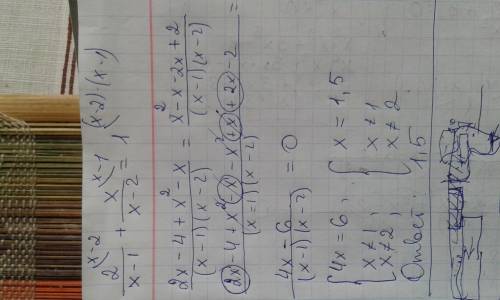 2^{(x-2} / (x-1) + x^{(x-1} / (x-2) = 1^{(x-2)·(x-1)}
(2x-4+x²-x) / ((x-1)(x-2)) = (x²-x-2x+2) / ((x-1)(x-2))
(2x-4+x²-x-x²+x+2x-2) / ((x-1)(x-2)) =
(4x-6) / ((x-1)(x-2)) = 0
{ 4x=6, { x=1,5
x≠1, x≠1
x≠2, x≠2
Ответ: 1,5